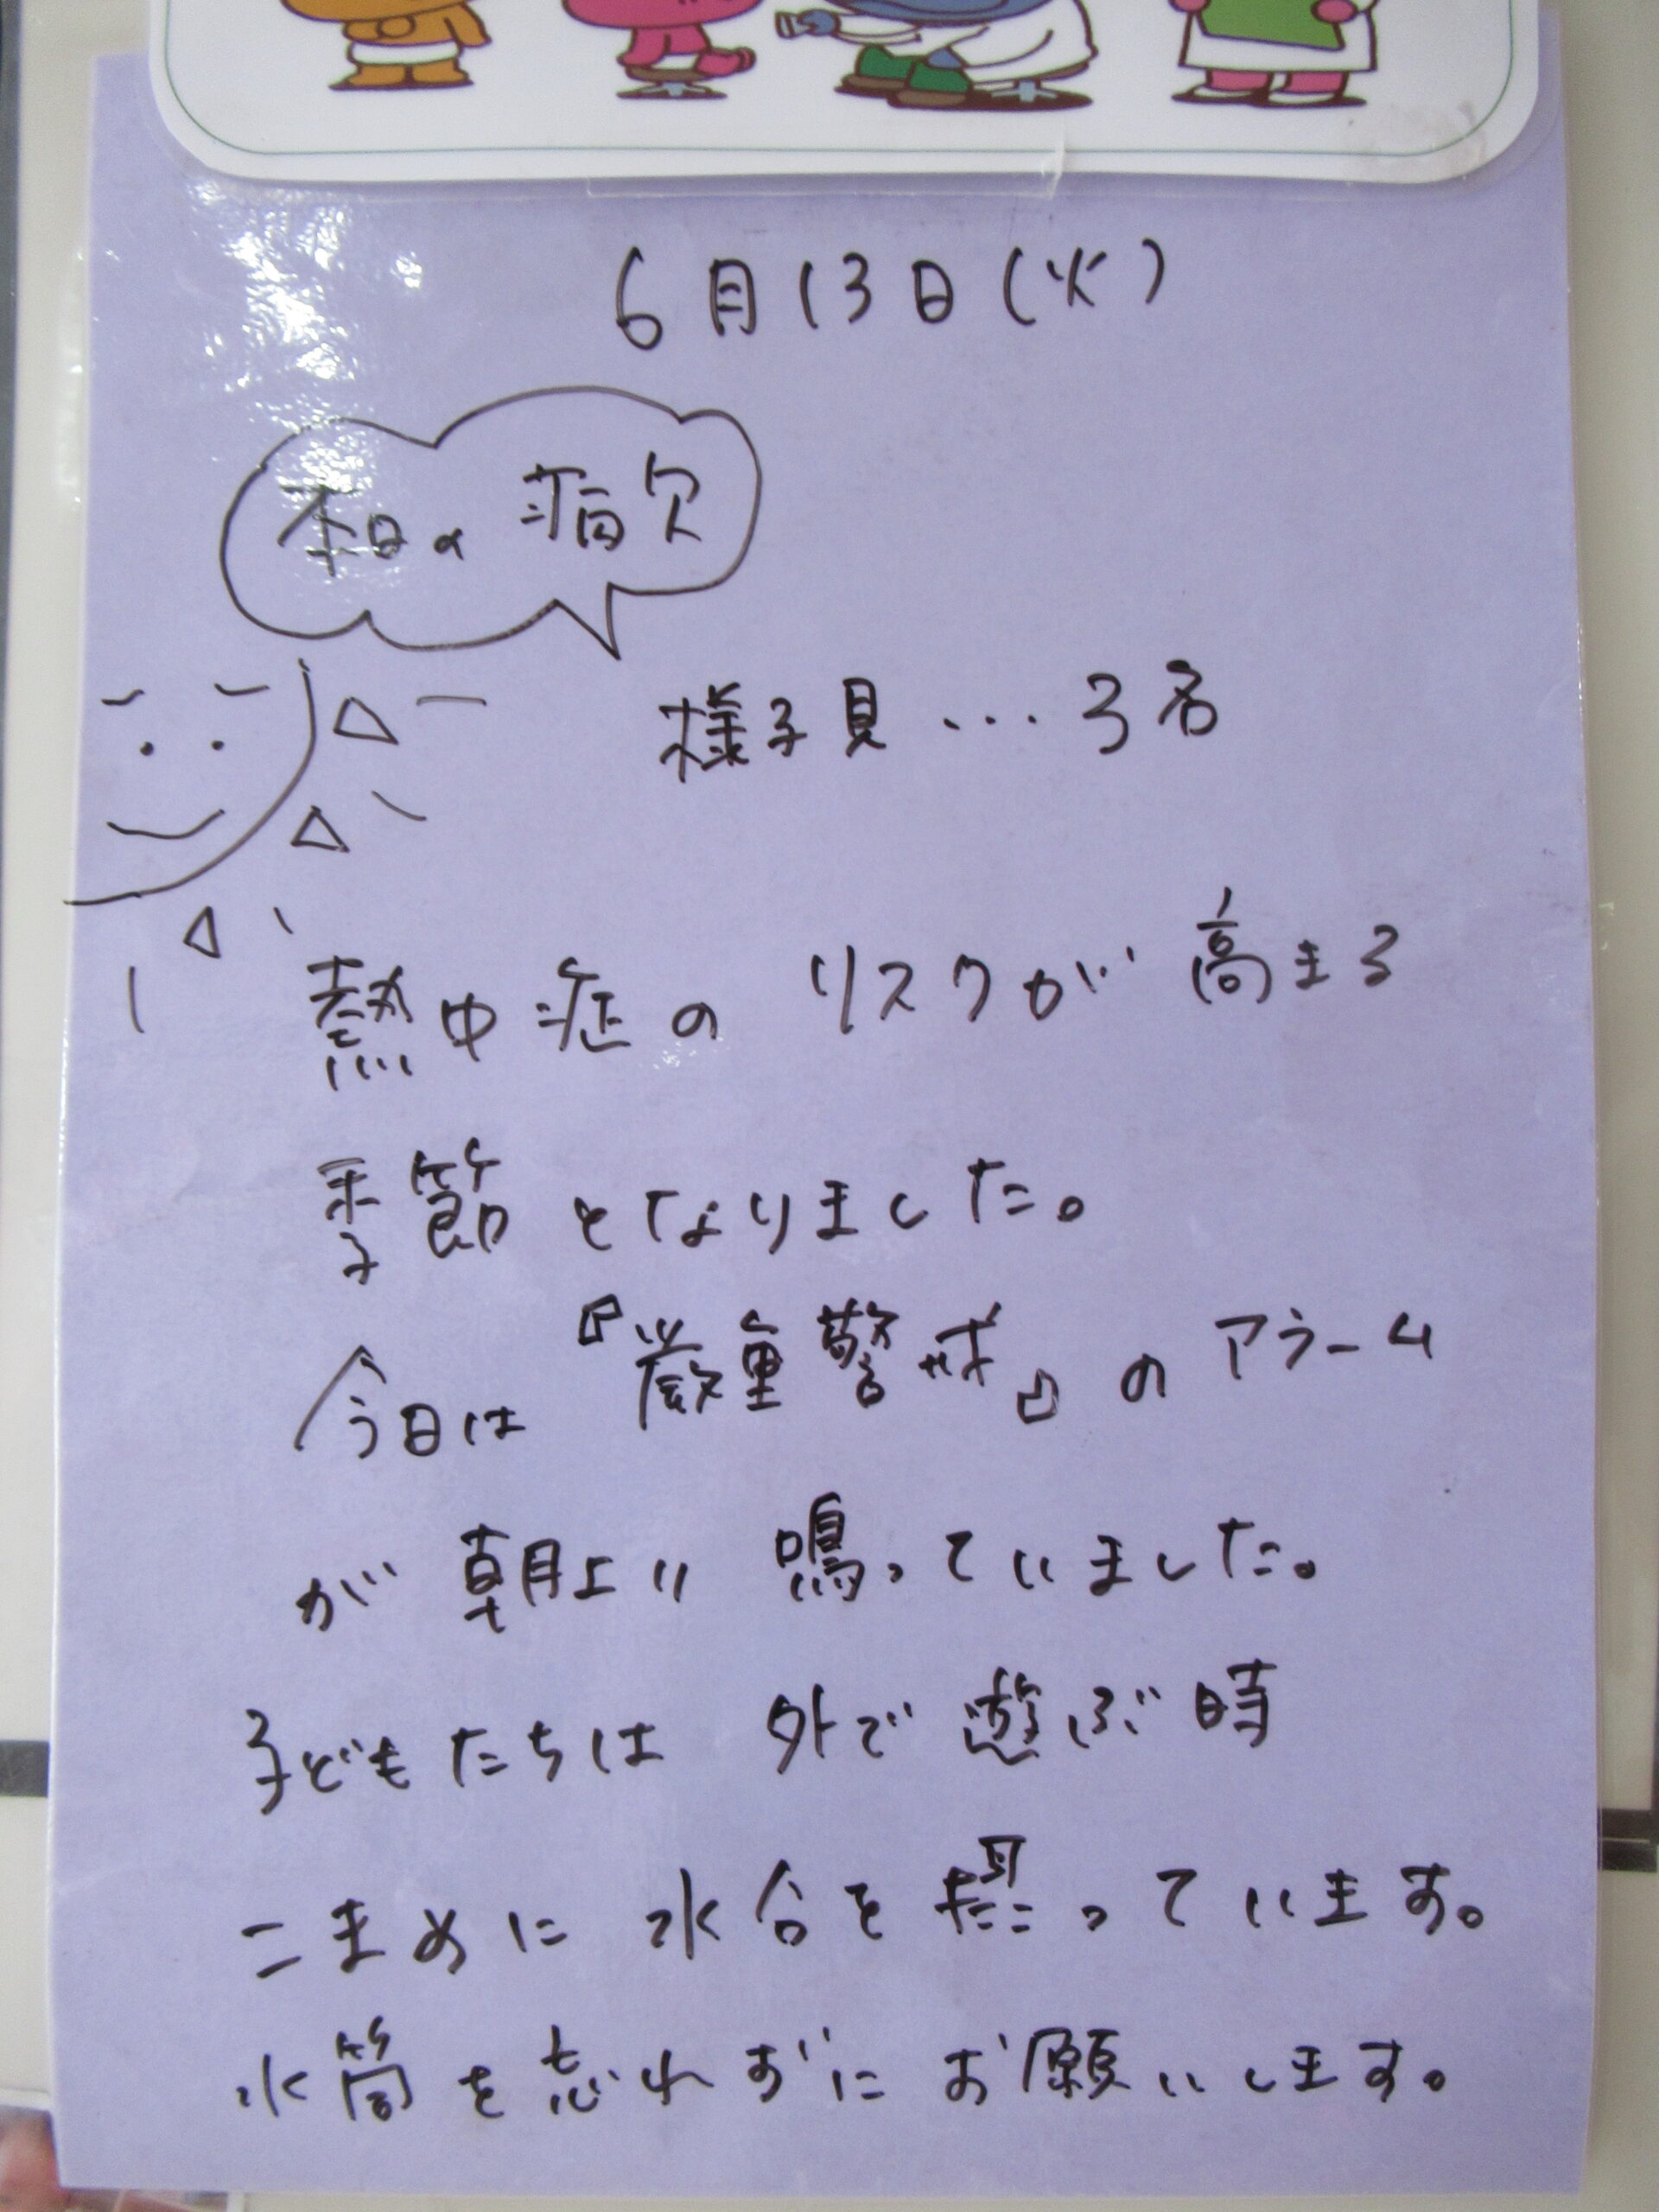 6月13日(火)
本日の病欠
様子見・・・3名
熱中症のリスクが高まる
季節となりました。
今日は『厳重警戒』のアラーム
が朝より鳴っていました。
子どもたちは外で遊ぶ時
こまめに水分を摂っています。
水筒を忘れずにお願いします。